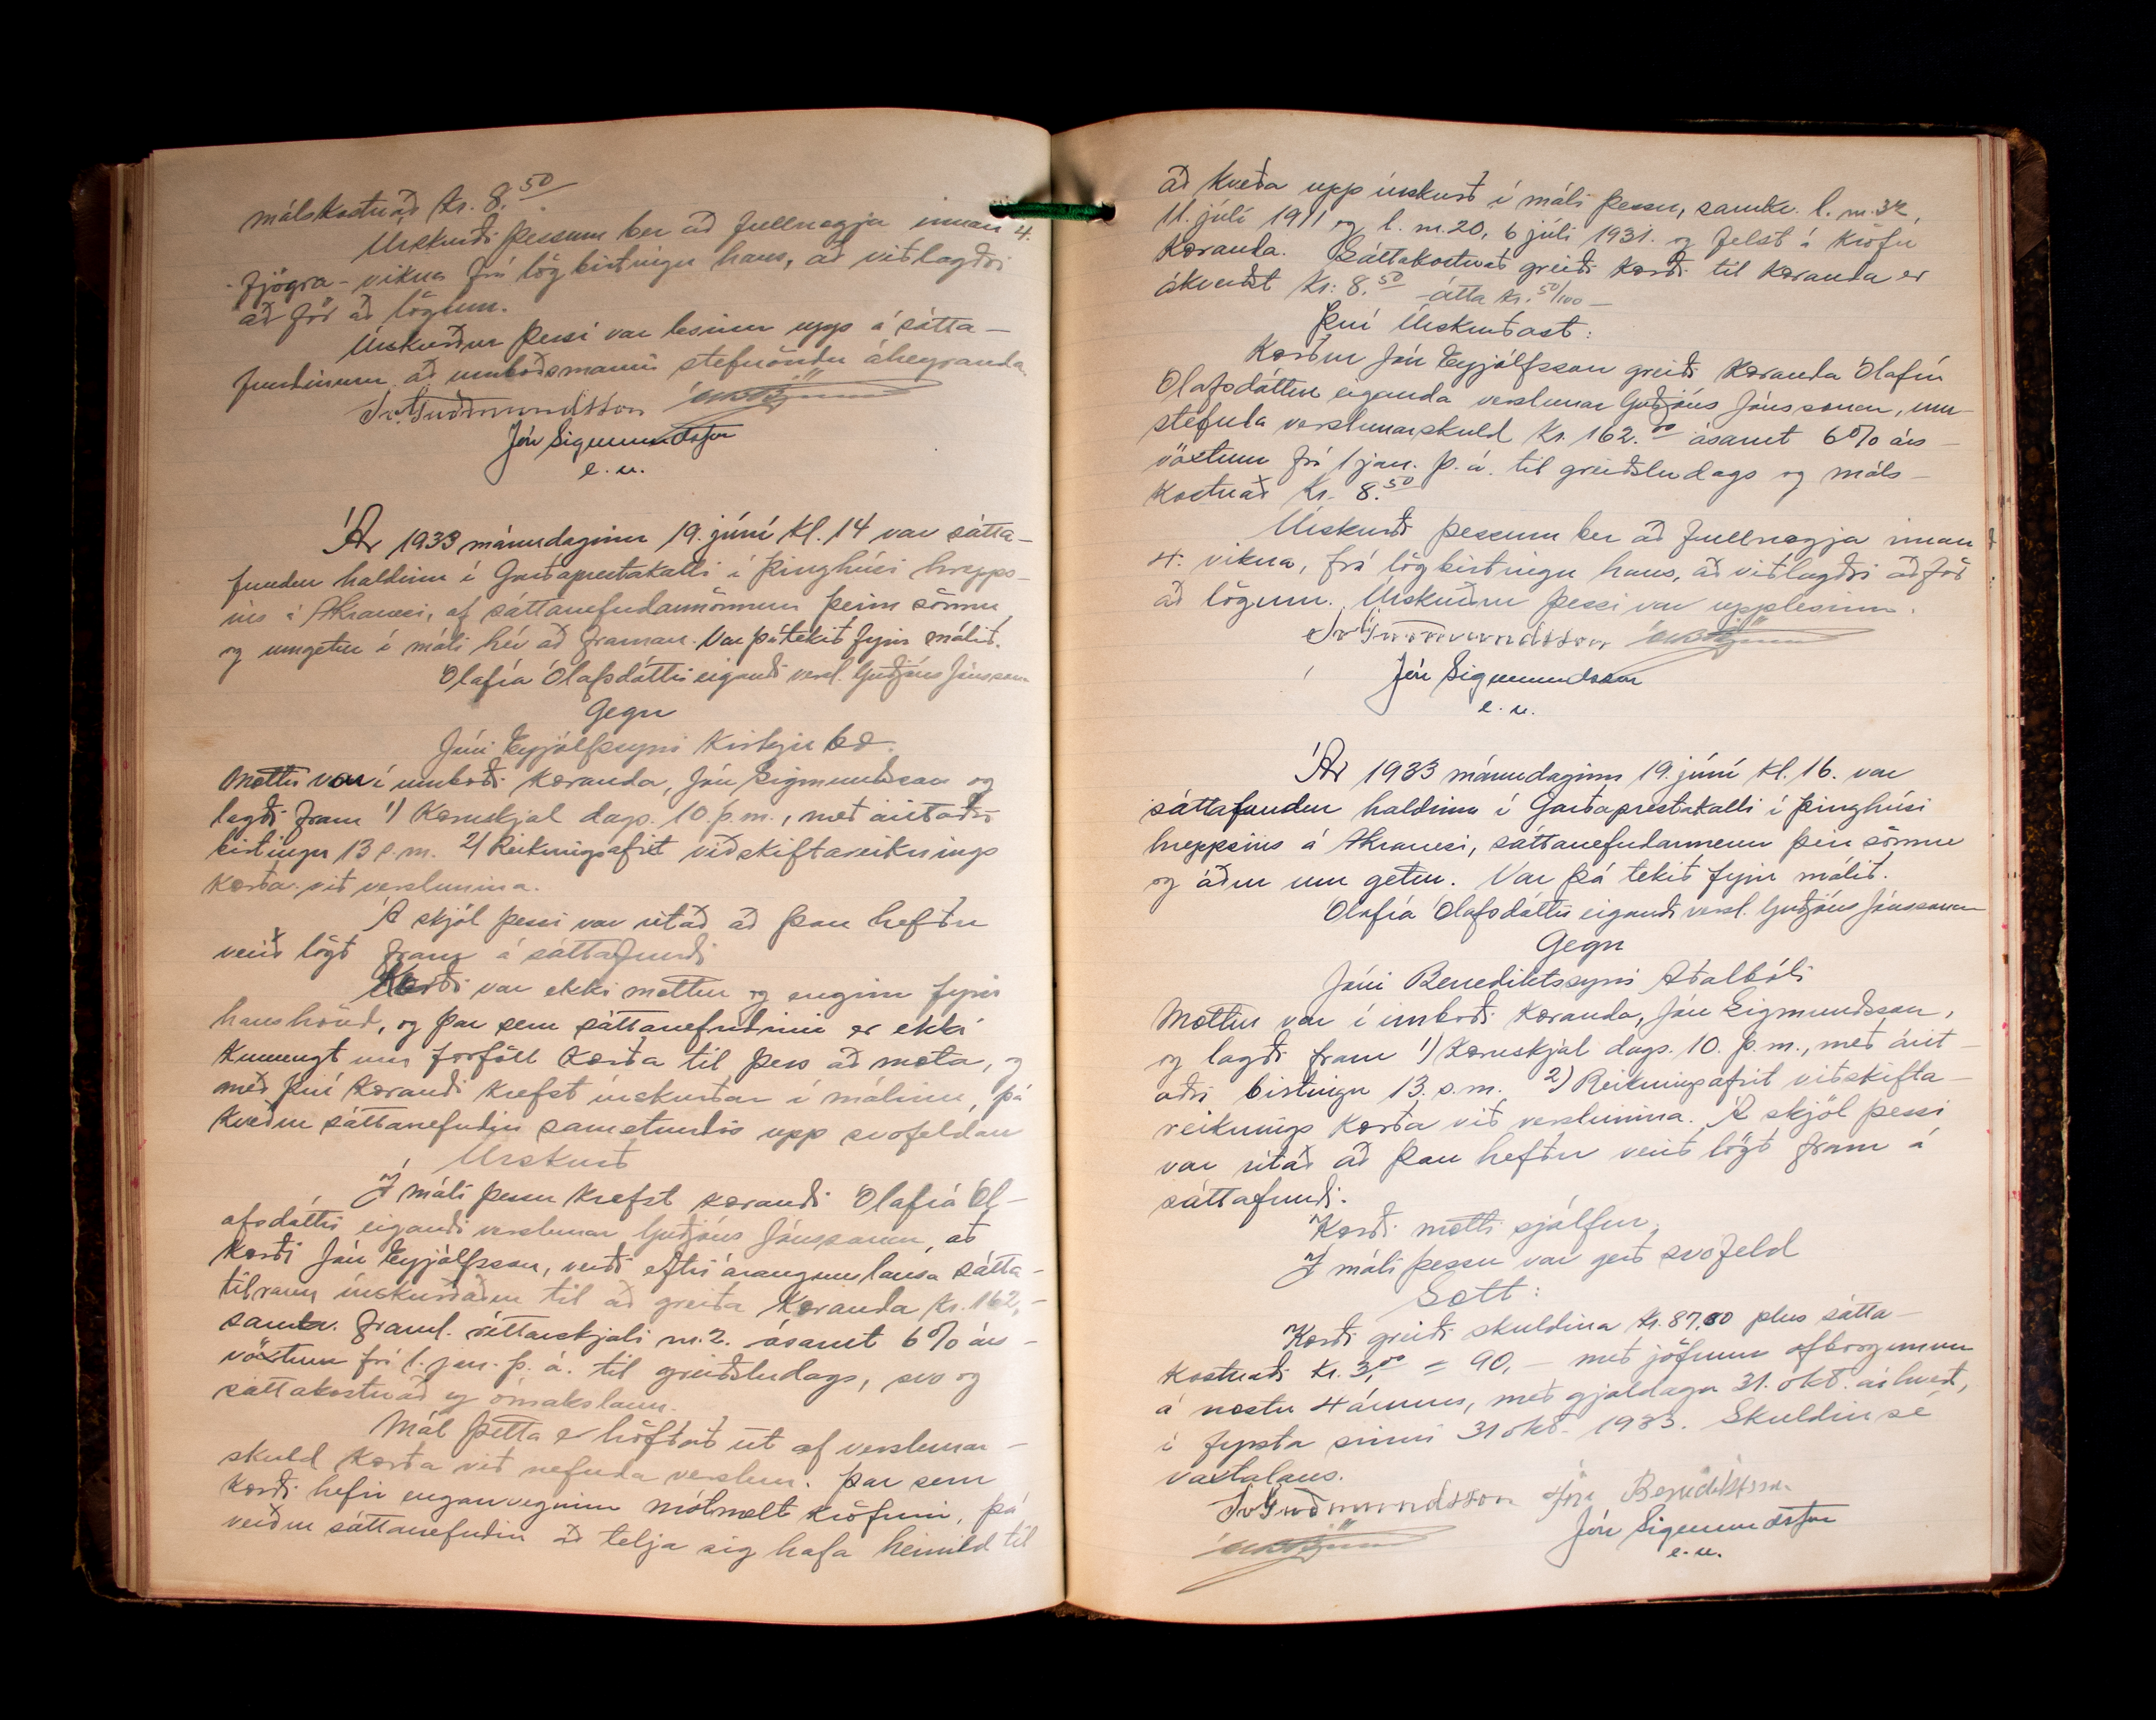 málskostnað kr. 8.50
Úrskurði þessum ber að fullnægja innan 4.
-fjögra- vikna frá lögbirtingu hans, að viðlagðri
aðför að lögum.
Úrskurður þessi var lesinn upp á sátta-
fundinum, að umboðsmanni stefnöndu áheyranda
Sv. Guðmundsson
Jón Sigmundsson
e. u.
Ár 1933 mánudaginn 19. júní kl. 14 var sátta-
fundur haldinn í Garðaprestakalli í þinghúsi hrepps-
ins á Akranesi, af sáttanefndarmönnum þeim sömu
og umgetur í máli hér að framan. Var þá tekið fyrir málið.
Ólafía Ólafsdóttir eigandi versl. Guðjóns Jónssonar
Gegn
Jóni Eyjólfssyni Kirkjubæ.
Mættur var í umboði kæranda, Jón Sigmundsson og
lagði fram 1) Kæruskjal dags. 10. þ.m., með áritaðri
birtingu 13 s.m. 2) Reikningsafrit viðskiftareiknings
kærða við verslunina.
Á skjöl þessi var ritað að þau hefðu
verið lögð fram á sáttafundi
Kærði var ekki mættur og enginn fyrir
hans hönd, og þar sem sáttanefndinni er ekki
kunnugt um forföll kærða til þess að mæta, og
með því kærandi krefst úrskurðar í málinu, þá
kveður sáttanefndin samstundis upp svofeldan
Úrskurð
Í máli þessu krefst kærandi Ólafía Ól-
afsdóttir eigandi verslunar Guðjóns Jónssonar, að
kærði Jón Eyjólfsson, verði eftir árangurslausa sátta-
tilraun úrskurðaður til að greiða kæranda kr. 162,-
samkv. framl. réttarskjali nr. 2. ásamt 6% árs-
vöxtum frá 1. jan. þ.á. til greiðsludags, svo og
sáttakostnað og ómakslaun.
Mál þetta er höfðað út af verslunar-
skuld kærða við nefnda verslun. Þar sem
kærði hefir enganveginn mótmælt kröfunni, þá
verður sáttanefndin að telja sig hafa heimild til
að kveða upp úrskurð í máli þessu, samkv. l. nr. 32,
11. júlí 1911 og l. nr. 20, 6 júlí 1931. og felst á kröfu
kæranda. Sáttakostnað greiði kærði til kæranda er
ákveðst kr: 8.50 átta kr. 50/100 -
Því Úrskurðast:
Kærður Jón Eyjólfsson greiði kæranda Ólafíu
Ólafsdóttur eiganda verslunar Guðjóns Jónssonar, um-
stefnda verslunarskuld kr. 162.00 ásamt 6% árs-
vöxtum frá 1 jan. þ.á. til greiðsludags og máls-
kostnað kr. 8.50
Úrskurði þessum ber að fullnægja innan
4. vikna, frá lögbirtingu hans, að viðlagðri aðför
að lögum. Úrskurður þessi var upplesinn.
Sv. Guðmundsson
Jón Sigmundsson
e. u.
Ár 1933 mánudaginn 19. júní kl. 16. var
sáttafundur haldinn í Garðaprestakalli í þinghúsi
hreppsins á Akranesi, sáttanefndarmenn þeir sömu
og áður um getur. Var þá tekið fyrir málið.
Ólafía Ólafsdóttir eigandi versl. Guðjóns Jónssonar
Gegn
Jóni Benediktssyni Aðalbóli
Mættur var í umboði kæranda, Jón Sigmundsson,
og lagði fram 1) Kæruskjal dags. 10. þ.m., með árit-
aðri birtingu 13. s.m. 2) Reikningsafrit viðskifta-
reiknings kærða við verslunina. Á skjöl þessi
var ritað að þau hefðu verið lögð fram á
sáttafundi.
Kærði mætti sjálfur.
Í máli þessu var gerð svofeld
Sætt:
Kærði greiði skuldina kr. 87,00 plus sátta-
kostnaði kr. 3,00 = 90,- með jöfnum afborgunum
á næstu 4 árum, með gjalddaga 31. okt. ár hvert,
í fyrsta sinni 31 okt. 1933. Skuldin sé
vaxtalaus.
Sv. Guðmundsson Jón Benediktsson
Jón Sigmundsson
e. u.